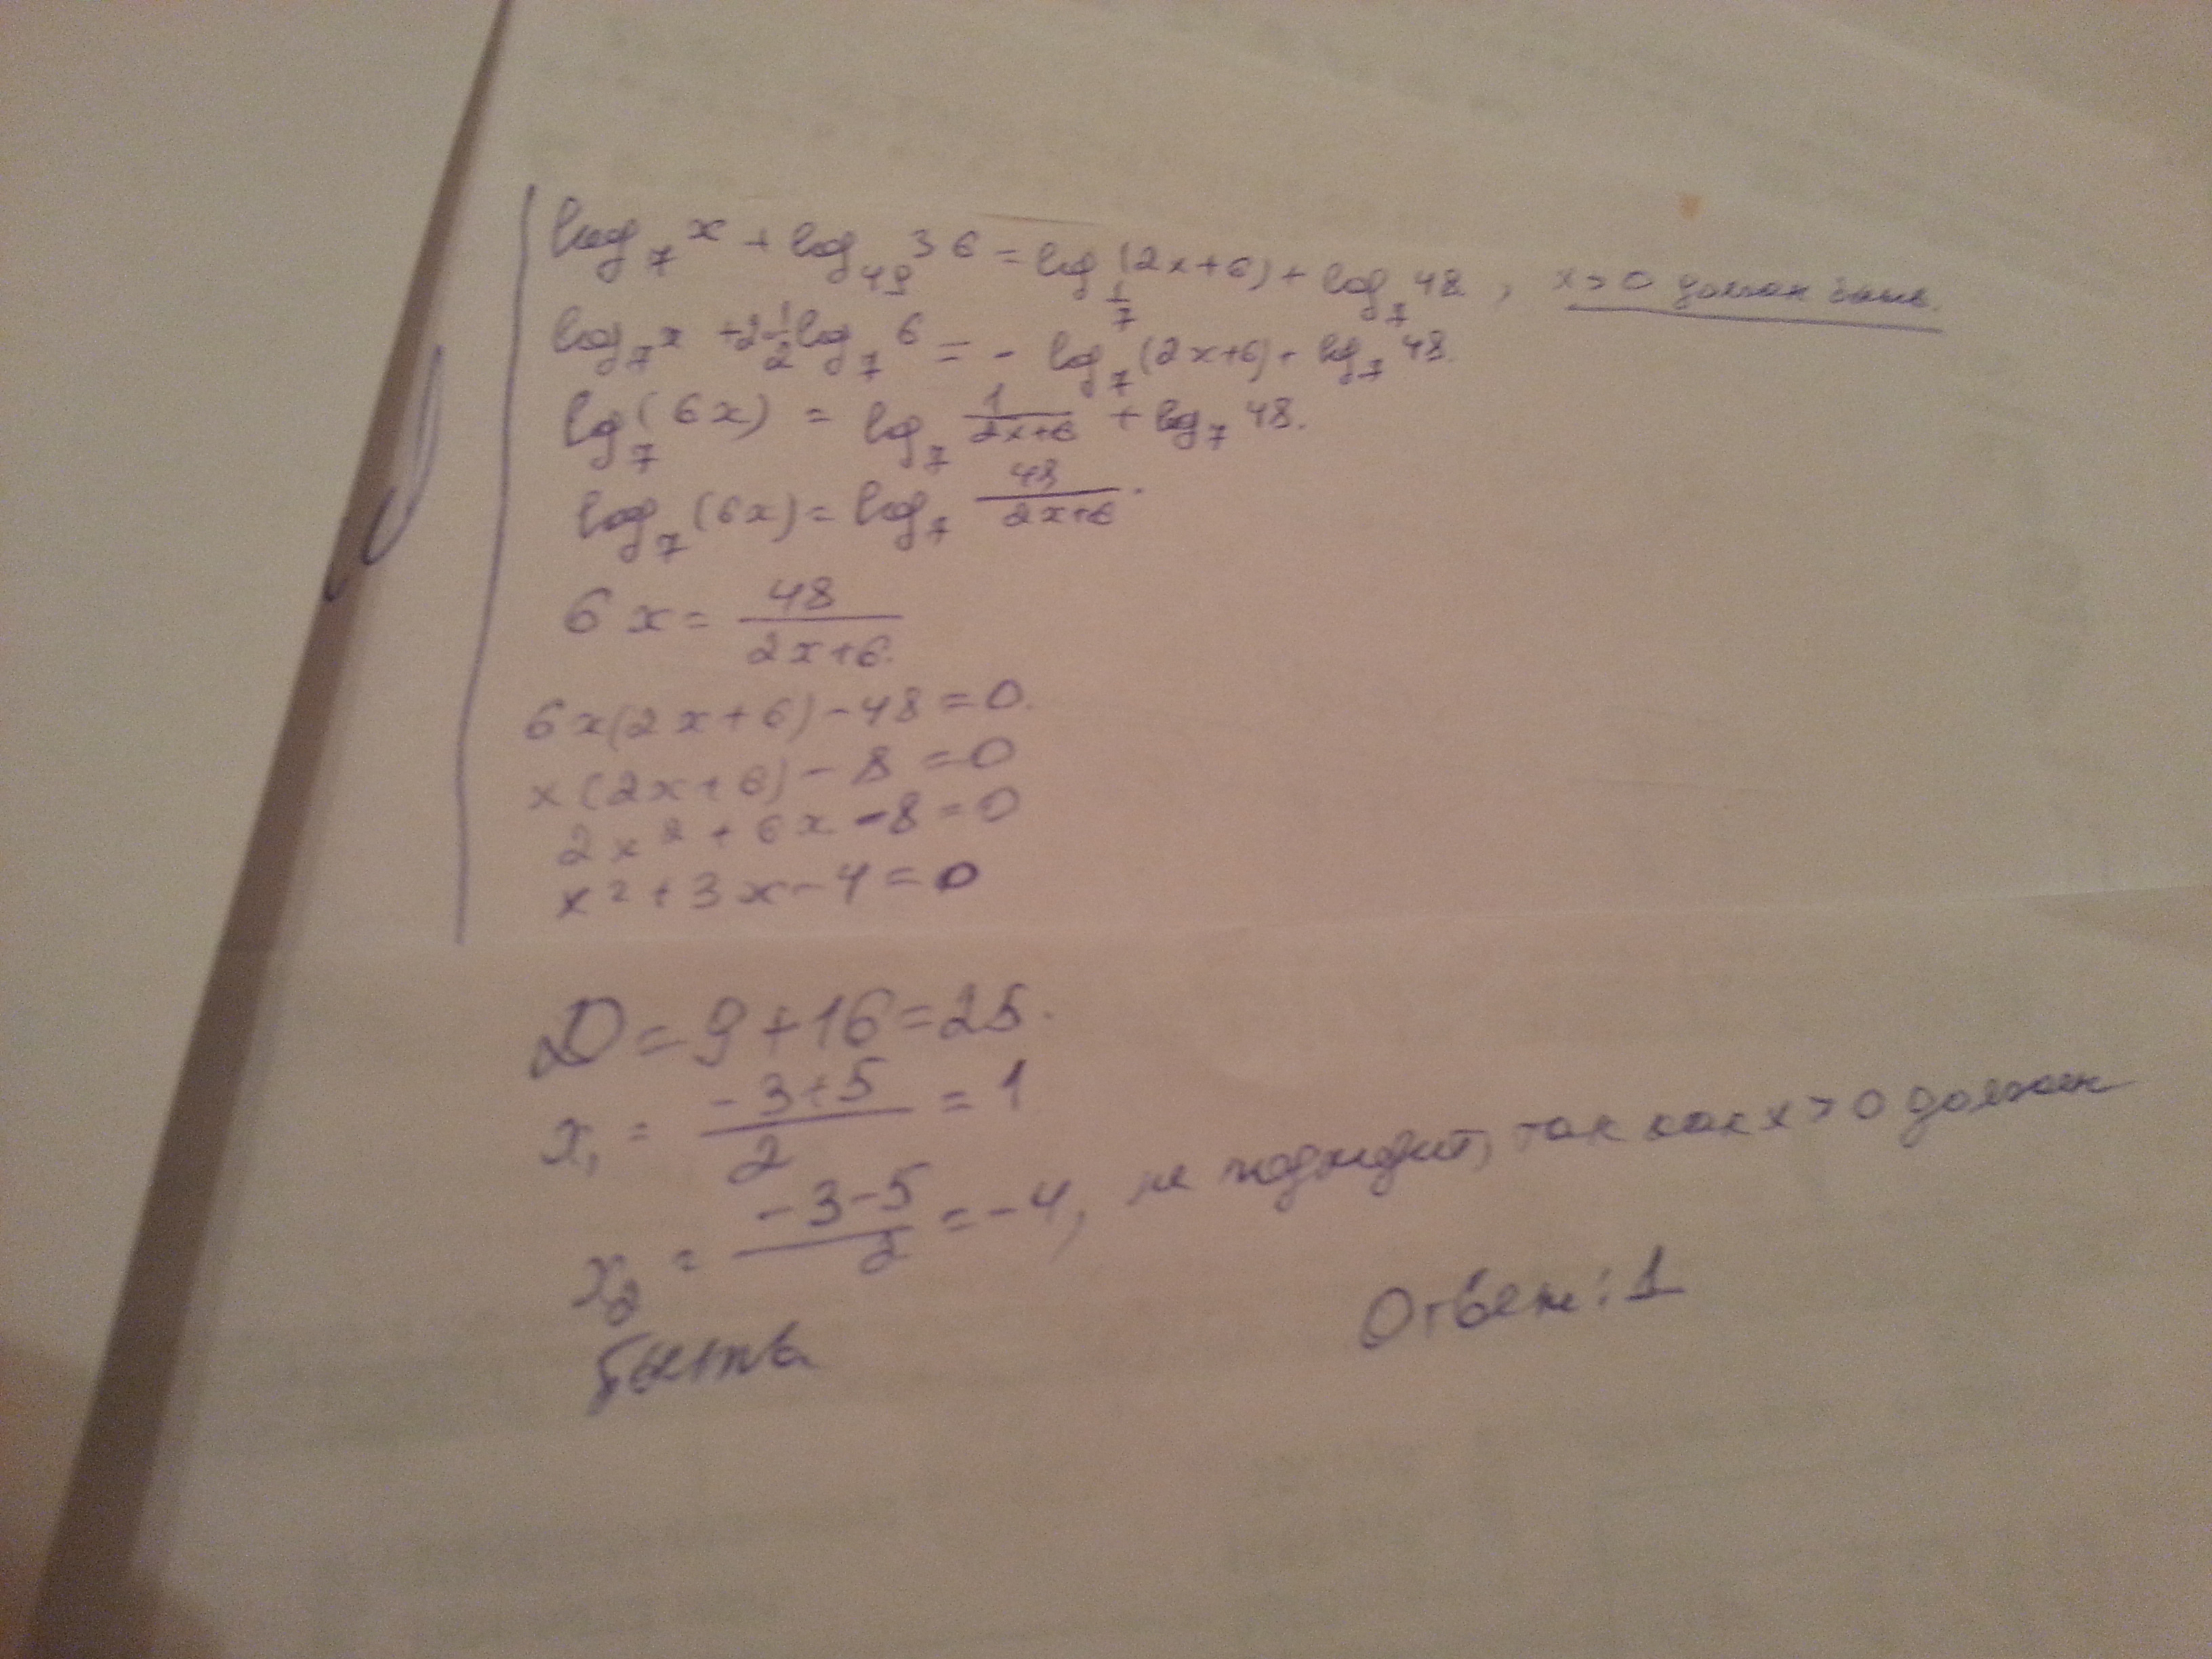 log₇ x + log₄₉ 36 = log_{1/7} (2x+6) + log₇ 48, x > 0 должен быть.
log₇ x + 2·1/2 log₇ 6 = - log₇ (2x+6) + log₇ 48.
log₇ (6x) = log₇ 1/(2x+6) + log₇ 48.
log₇ (6x) = log₇ 48/(2x+6).
6x = 48/(2x+6).
6x(2x+6) - 48 = 0.
x(2x+6) - 8 = 0
2x² + 6x - 8 = 0
x² + 3x - 4 = 0
D = 9 + 16 = 25.
x₁ = (-3+5)/2 = 1
x₂ = (-3-5)/2 = -4, не подходит, так как x > 0 должен
быть.
Ответ: 1